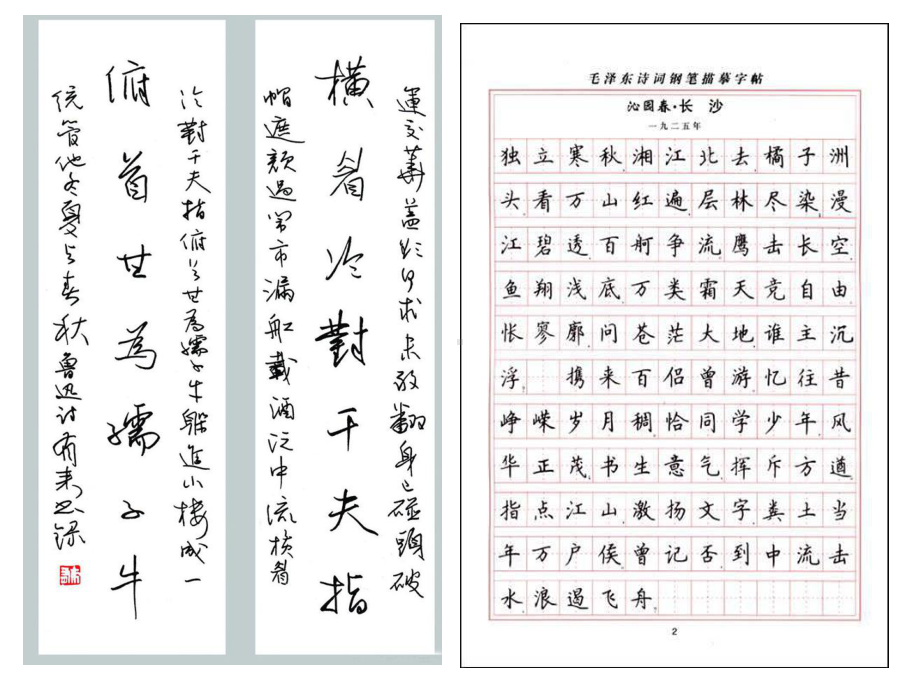 運交華蓋欲何求未敢翻身已碰頭破
横眉冷對千夫指
帽遮顏過鬧市漏船載酒泛中流横眉
冷對千夫指俯首甘為孺子牛躲進小樓成一
俯首甘為孺子牛
统管他冬夏与春秋魯迅诗
毛泽东诗词钢笔描摹字帖
沁园春·长 沙
一九二五年
独立寒秋湘江北去橘子洲
头看万山红遍层林尽染漫
江碧透百舸争流鹰击长空
鱼翔浅底万类霜天竞自由
怅寥廓问苍茫大地谁主沉
浮 携来百侣曾游忆往昔
峥嵘岁月稠恰同学少年风
华正茂书生意气挥斥方遒
指点江山激扬文字粪土当
年万户侯曾记否到中流击
水浪遏飞舟
2